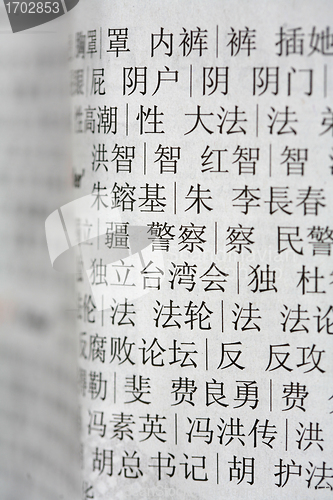 17202853
胸罩|罩 内裤|裤 插她
屁|阴户|阴 阴门|
性高潮|性 大法|法
洪智|智 红智|智
朱鎔基|朱 李長春
疆 警察|察 民警
独立台湾会|独 杜
法轮|法 法轮|法 法论
反腐败论坛|反 反攻
弗勒|斐 费良勇|费
冯素英|冯洪传|洪
胡总书记|胡 护法